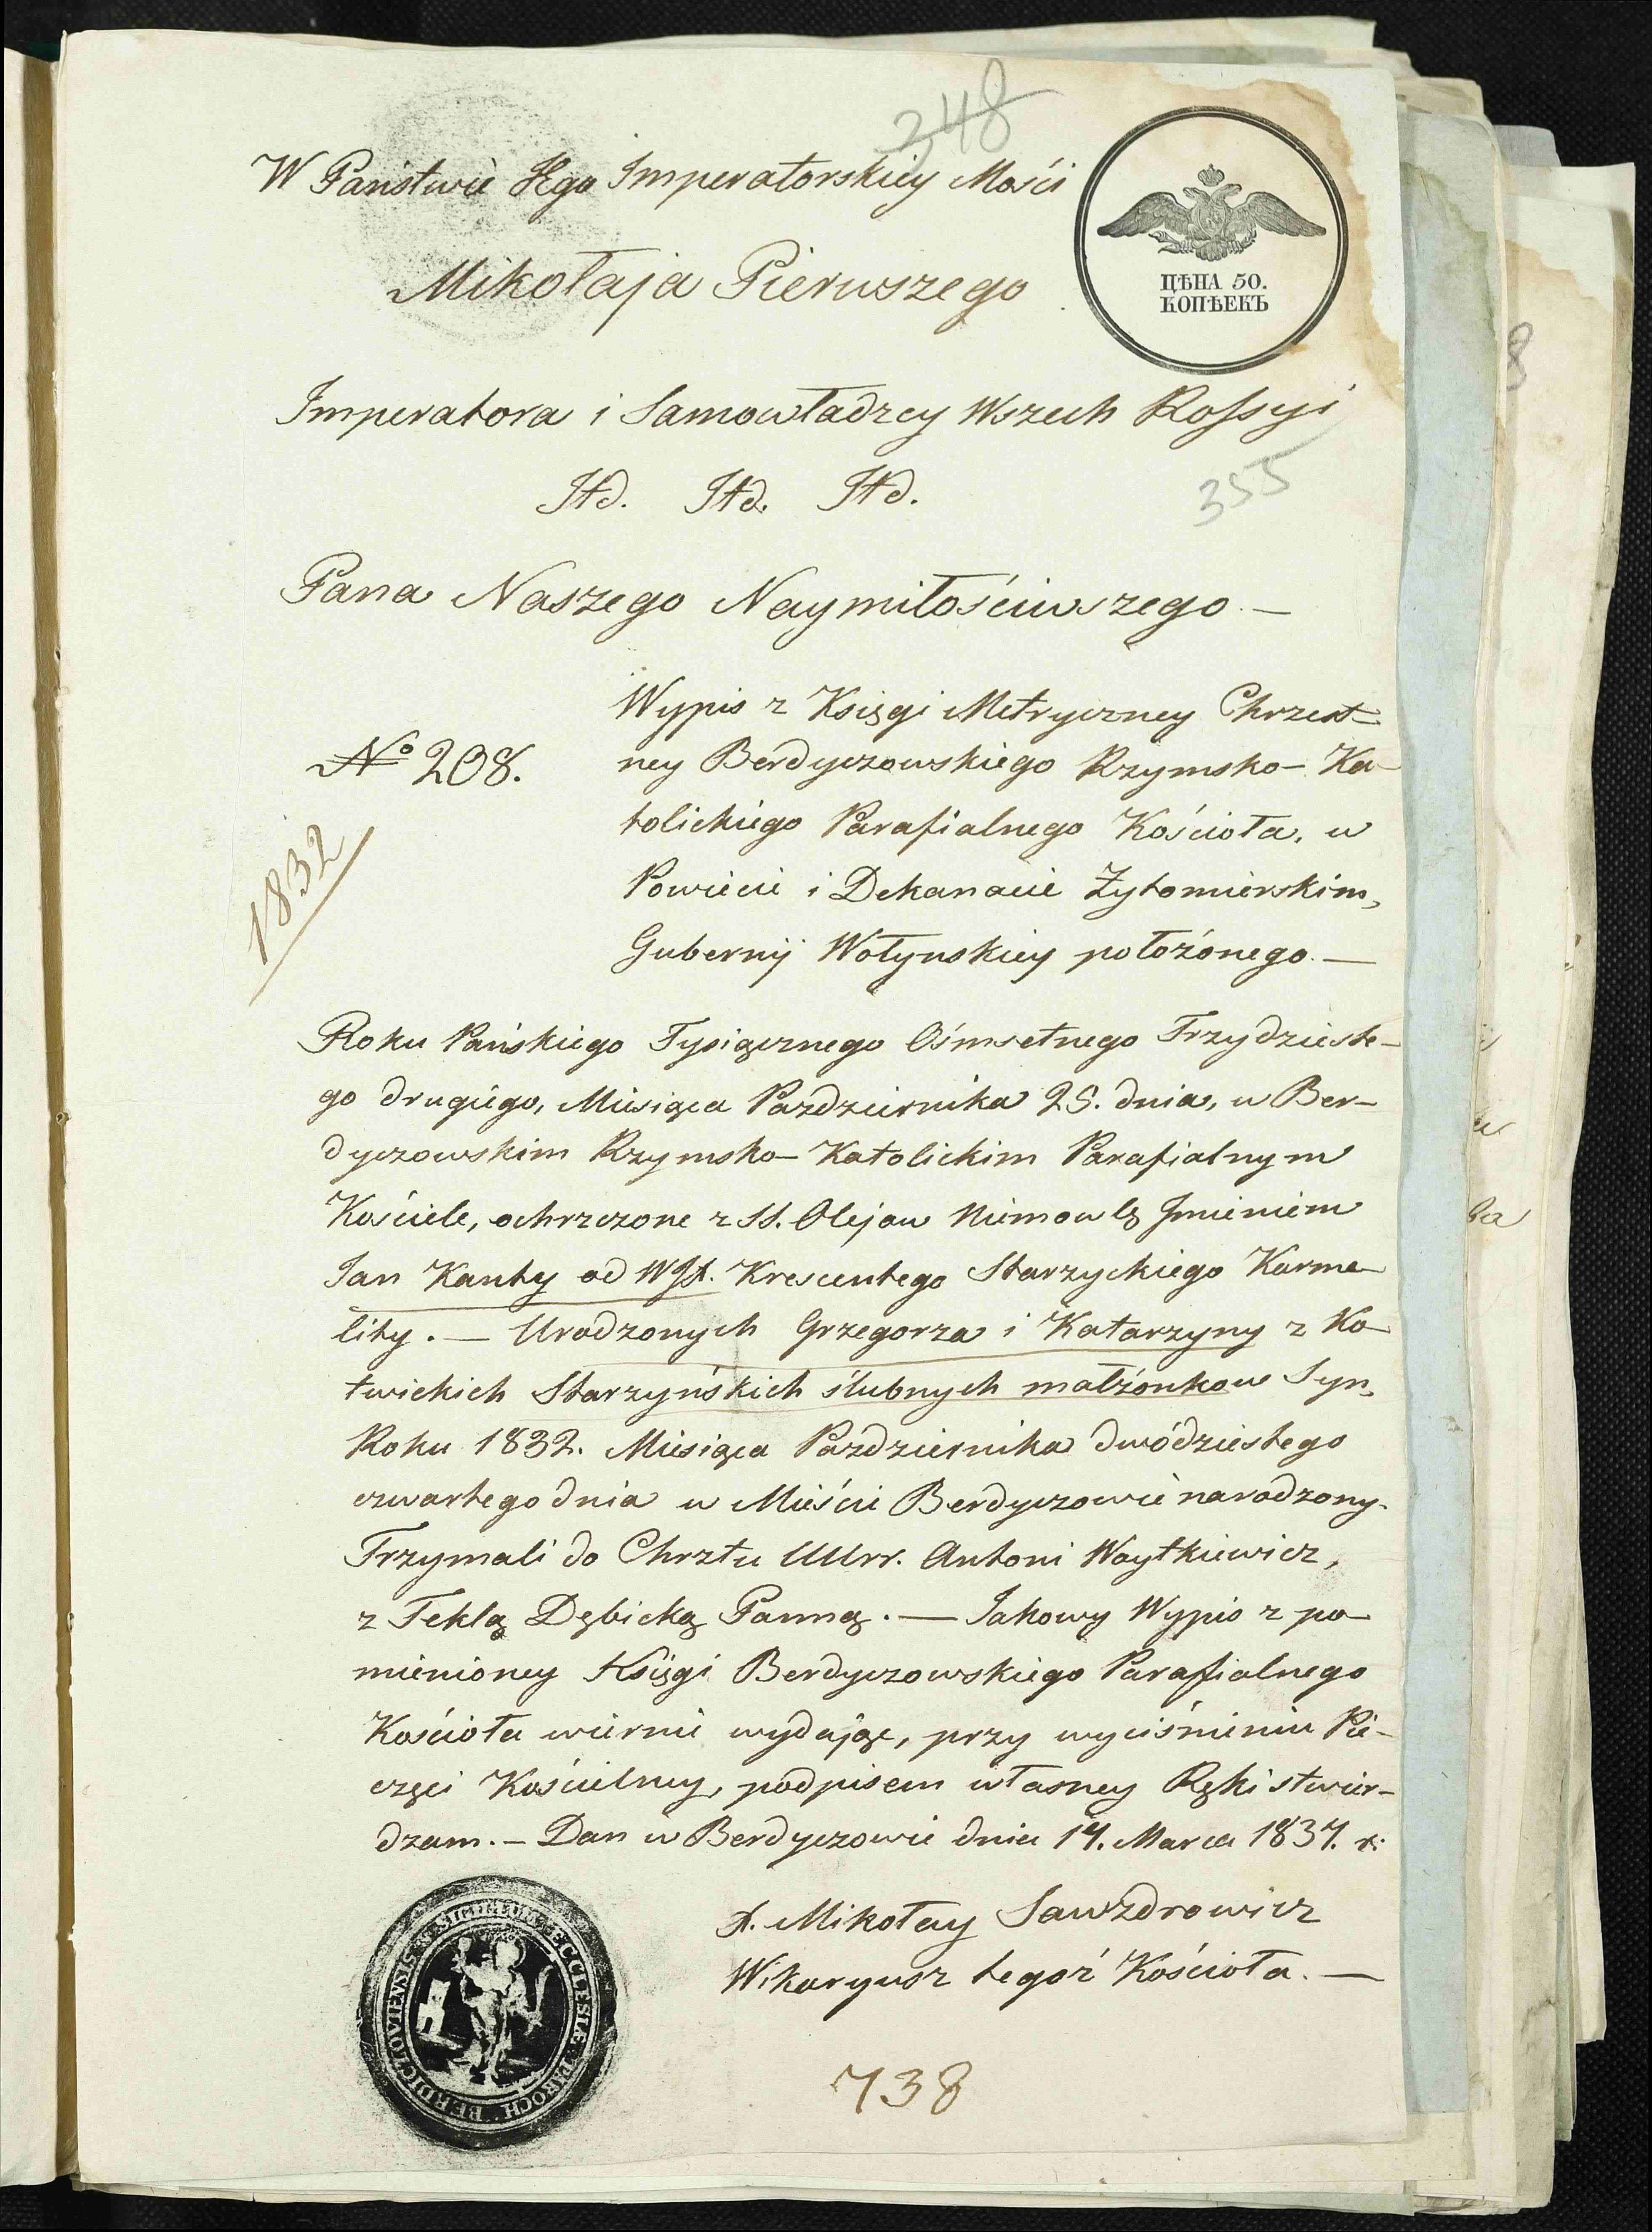 348
W Państwie Jego Imperatorskiey Mości
Mikołaja Pierwszego
ЦѢНА 50.
КОПѢЕКЪ
Imperatora i Samowładzcy Wszech Rossyi
Itd. Itd. Itd.
355
Pana Naszego Naymiłościwszego. —
Wypis z Księgi Metryczney Chrzest-
№ 208. ney Berdyczowskiego Rzymsko-Ka-
tolickiego Parafialnego Kościoła, w
1832
Powiecie i Dekanacie Żytomierskim,
Gubernij Wołynskiey położonego. —
Roku Pańskiego Tysiącznego Ośmsetnego Trzydzieste-
go drugiego, Miesiąca Pazdziernika 25. dnia, w Ber-
dyczowskim Rzymsko-Katolickim Parafialnym
Kościele, ochrzczone z SS. Olejow Niemowlę Imieniem
Jan Kanty od WJX. Krescentego Starzyckiego Karme-
lity. — Urodzonych Grzegorza i Katarzyny z Ko-
twickich Starzyńskich ślubnych małżonkow Syn,
Roku 1832. Miesiąca Pazdziernika dwódziestego
czwartego dnia w Mieście Berdyczowie narodzony.
Trzymali do Chrztu UUrr. Antoni Woytkiewicz,
z Teklą Dębicką Panną. — Jakowy Wypis z po-
mienioney Księgi Berdyczowskiego Parafialnego
Kościoła wiernie wydając, przy wyciśnieniu Pie-
częci Kościelney, podpisem własney Ręki stwier-
dzam. — Dan w Berdyczowie dnia 14. Marca 1837. r:
X. Mikołay Sawzdrowicz
Wikaryusz tegoż Kościoła. —
ECCLESIÆ PAROCH BERDICIOVIENSIS
738